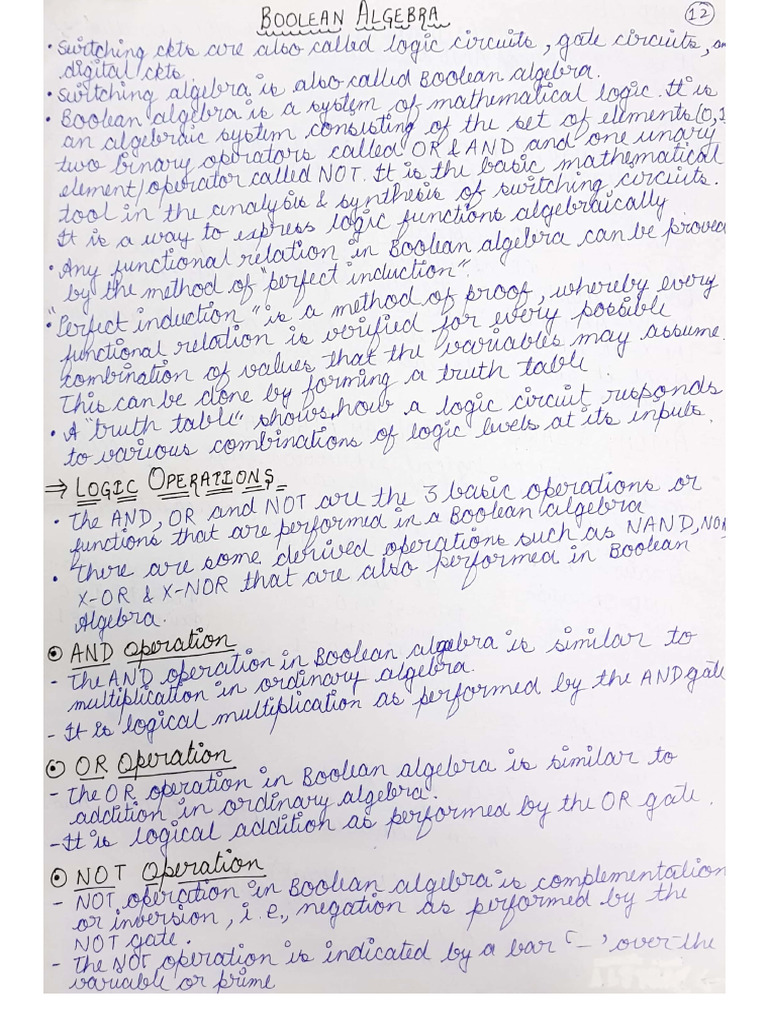 BOOLEAN ALGEBRA
12
• Switching ckts are also called logic circuits, gate circuits,
digital ckts.
• Switching algebra is also called Boolean algebra.
• Boolean algebra is a system of mathematical logic. It is
an algebraic system consisting of the set of elements (0,1
two binary operators called OR & AND and one unary
element/operator called NOT. It is the basic mathematical
tool in the analysis & synthesis of switching circuits.
It is a way to express logic functions algebraically
• Any functional relation in Boolean algebra can be proved
by the method of "perfect induction".
• "Perfect induction" is a method of proof, whereby every
functional relation is verified for every possible
combination of values that the variables may assume.
This can be done by forming a truth table.
• A "truth table" shows how a logic circuit responds
to various combinations of logic levels at its inputs.
⇒ LOGIC OPERATIONS
• The AND, OR and NOT are the 3 basic operations or
functions that are performed in a Boolean algebra
• There are some derived operations such as NAND, NOR
X-OR & X-NOR that are also performed in Boolean
Algebra.
⊙ AND Operation
- The AND operation in Boolean algebra is similar to
multiplication in ordinary algebra.
- It is logical multiplication as performed by the AND gate
⊙ OR Operation
- The OR operation in Boolean algebra is similar to
addition in ordinary algebra.
- It is logical addition as performed by the OR gate.
⊙ NOT Operation
- NOT operation in Boolean algebra is complementation
or inversion, i.e., negation as performed by the
NOT gate.
- The NOT operation is indicated by a bar '–' over the
variable or prime